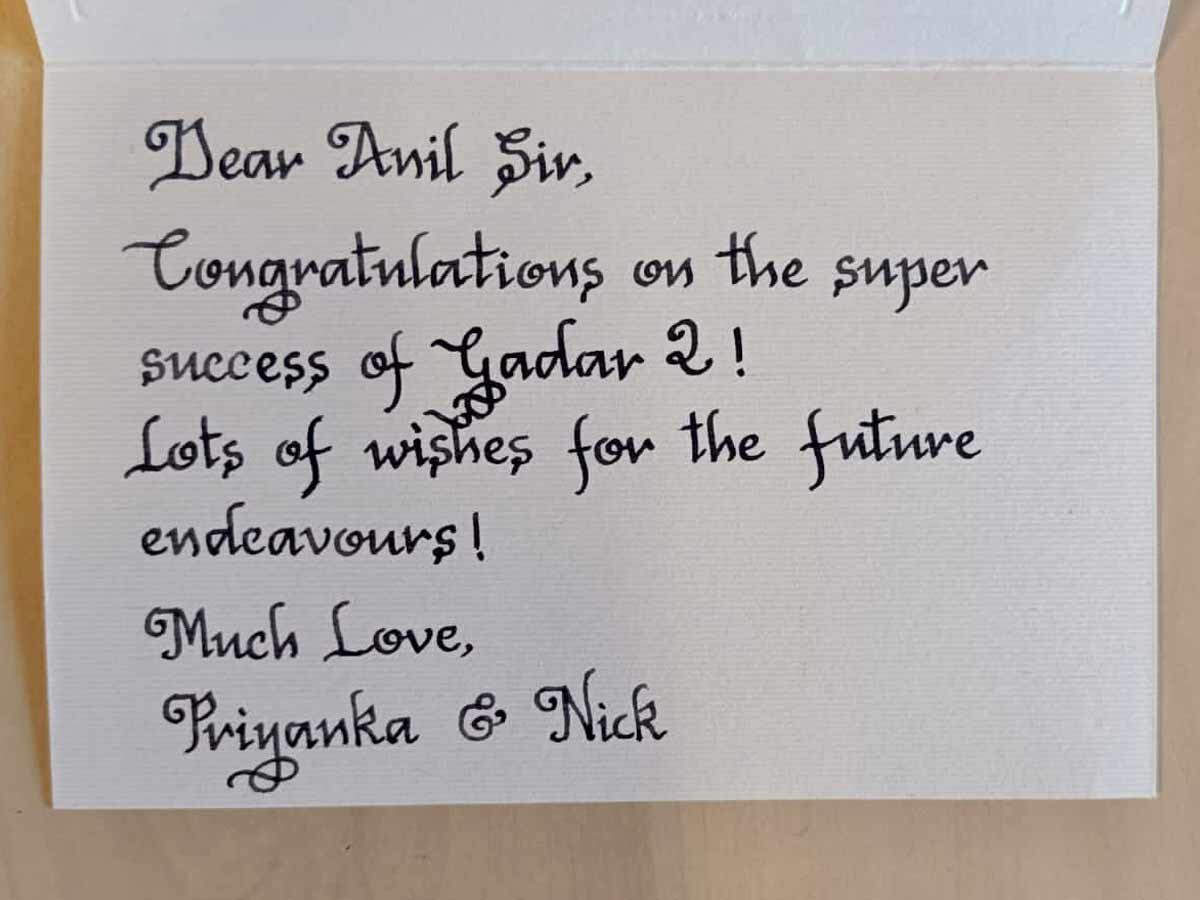 Dear Anil Sir,
Congratulations on the super
success of Gadar 2!
Lots of wishes for the future
endeavours!
Much Love,
Priyanka & Nick